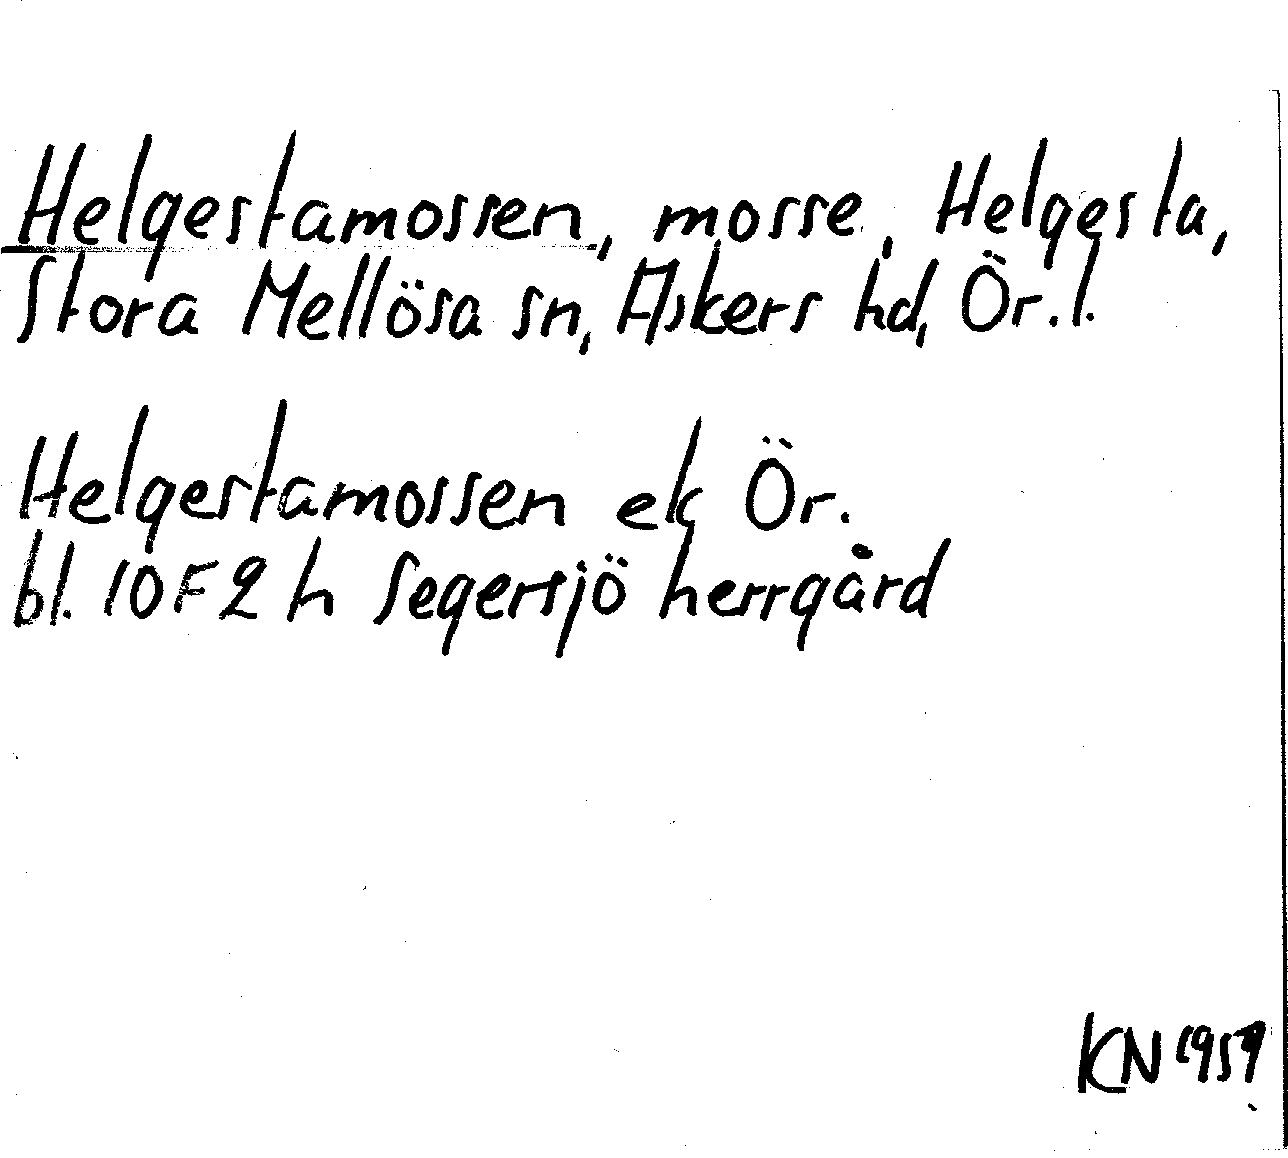 Helgestamossen, mosse, Helgesta,
Stora Mellösa sn, Askers hd, Ör.l.
Helgestamossen ek Ör.
bl. 10F2h Segersjö herrgård
KN 1959